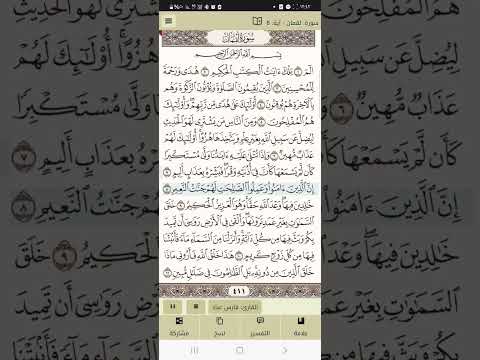 سورة: لقمان ، آية: 8
سُورَةُ لُقْمَانَ
بِسْمِ ٱللَّهِ ٱلرَّحْمَٰنِ ٱلرَّحِيمِ
الٓمٓ ١ تِلْكَ ءَايَٰتُ ٱلْكِتَٰبِ ٱلْحَكِيمِ ٢ هُدًى وَرَحْمَةً
لِّلْمُحْسِنِينَ ٣ ٱلَّذِينَ يُقِيمُونَ ٱلصَّلَوٰةَ وَيُؤْتُونَ ٱلزَّكَوٰةَ وَهُم
بِٱلْءَاخِرَةِ هُمْ يُوقِنُونَ ٤ أُو۟لَٰٓئِكَ عَلَىٰ هُدًى مِّن رَّبِّهِمْ وَأُو۟لَٰٓئِكَ
هُمُ ٱلْمُفْلِحُونَ ٥ وَمِنَ ٱلنَّاسِ مَن يَشْتَرِى لَهْوَ ٱلْحَدِيثِ
لِيُضِلَّ عَن سَبِيلِ ٱللَّهِ بِغَيْرِ عِلْمٍ وَيَتَّخِذَهَا هُزُوًا أُو۟لَٰٓئِكَ لَهُمْ
عَذَابٌ مُّهِينٌ ٦ وَإِذَا تُتْلَىٰ عَلَيْهِ ءَايَٰتُنَا وَلَّىٰ مُسْتَكْبِرًا
كَأَن لَّمْ يَسْمَعْهَا كَأَنَّ فِىٓ أُذُنَيْهِ وَقْرًا فَبَشِّرْهُ بِعَذَابٍ أَلِيمٍ ٧
إِنَّ ٱلَّذِينَ ءَامَنُوا۟ وَعَمِلُوا۟ ٱلصَّٰلِحَٰتِ لَهُمْ جَنَّٰتُ ٱلنَّعِيمِ ٨
خَٰلِدِينَ فِيهَا وَعْدَ ٱللَّهِ حَقًّا وَهُوَ ٱلْعَزِيزُ ٱلْحَكِيمُ ٩ خَلَقَ
ٱلسَّمَٰوَٰتِ بِغَيْرِ عَمَدٍ تَرَوْنَهَا وَأَلْقَىٰ فِى ٱلْأَرْضِ رَوَٰسِىَ أَن تَمِيدَ
بِكُمْ وَبَثَّ فِيهَا مِن كُلِّ دَآبَّةٍ وَأَنزَلْنَا مِنَ ٱلسَّمَآءِ مَآءً فَأَنۢبَتْنَا
فِيهَا مِن كُلِّ زَوْجٍ كَرِيمٍ ١٠ هَٰذَا خَلْقُ ٱللَّهِ فَأَرُونِى مَاذَا
خَلَقَ ٱلَّذِينَ مِن دُونِهِۦ بَلِ ٱلظَّٰلِمُونَ فِى ضَلَٰلٍ مُّبِينٍ ١١
٤١١
القارئ: فارس عباد
علامة
التفسير
نسخ
مشاركة